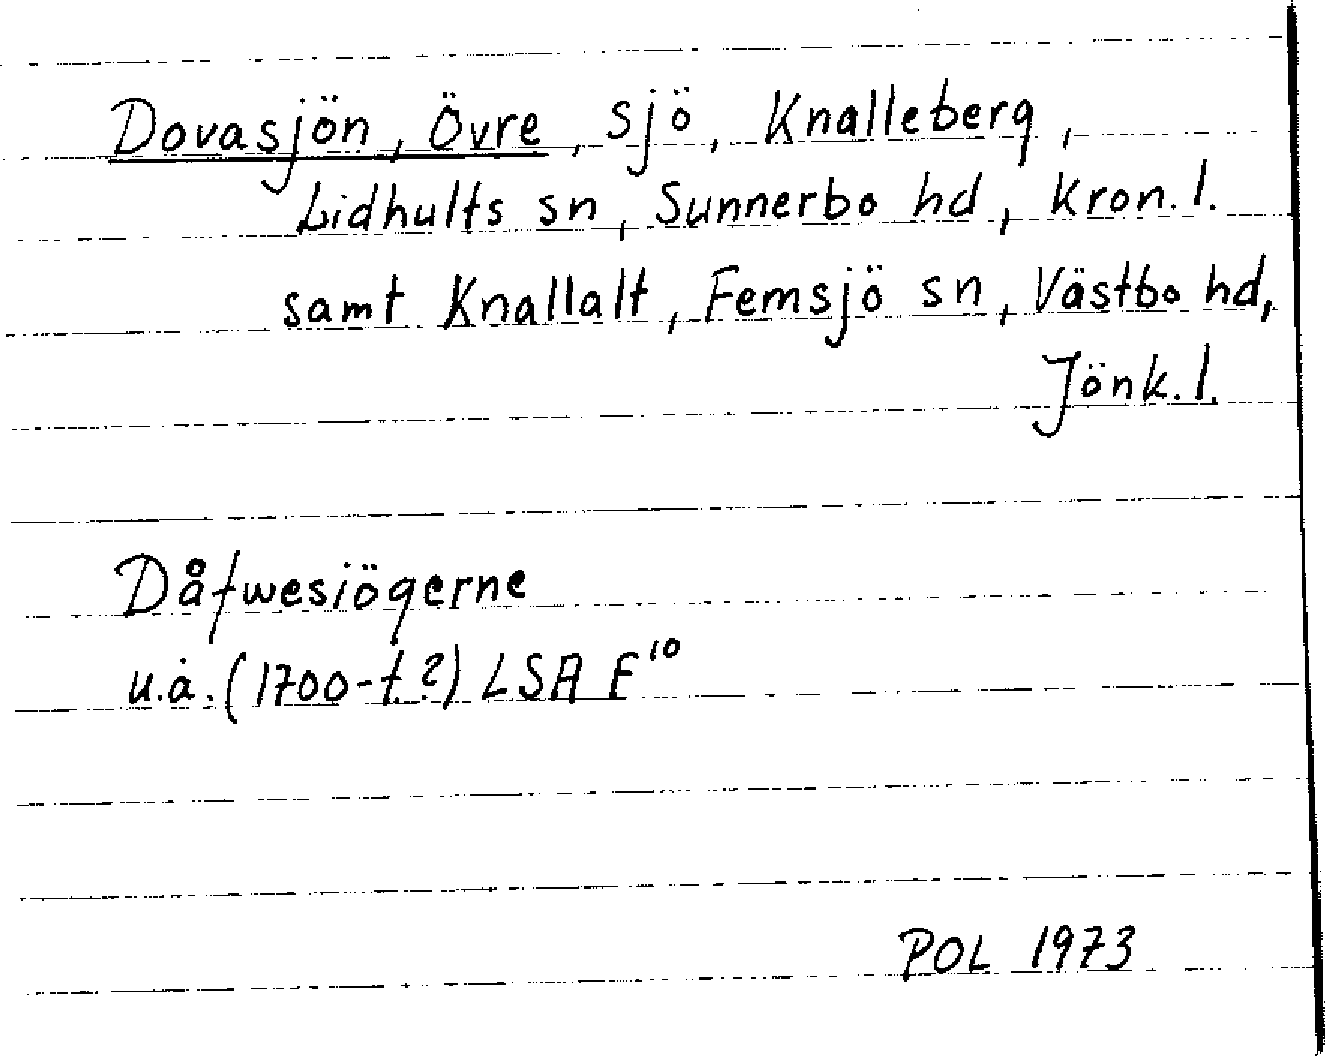 Dovasjön, Övre, sjö, Knalleberg,
Lidhults sn, Sunnerbo hd, Kron. l.
samt Knallalt, Femsjö sn, Västbo hd,
Jönk. l.
Dåfwesiögerne
u.å. (1700-t.?) LSA F¹⁰
POL 1973